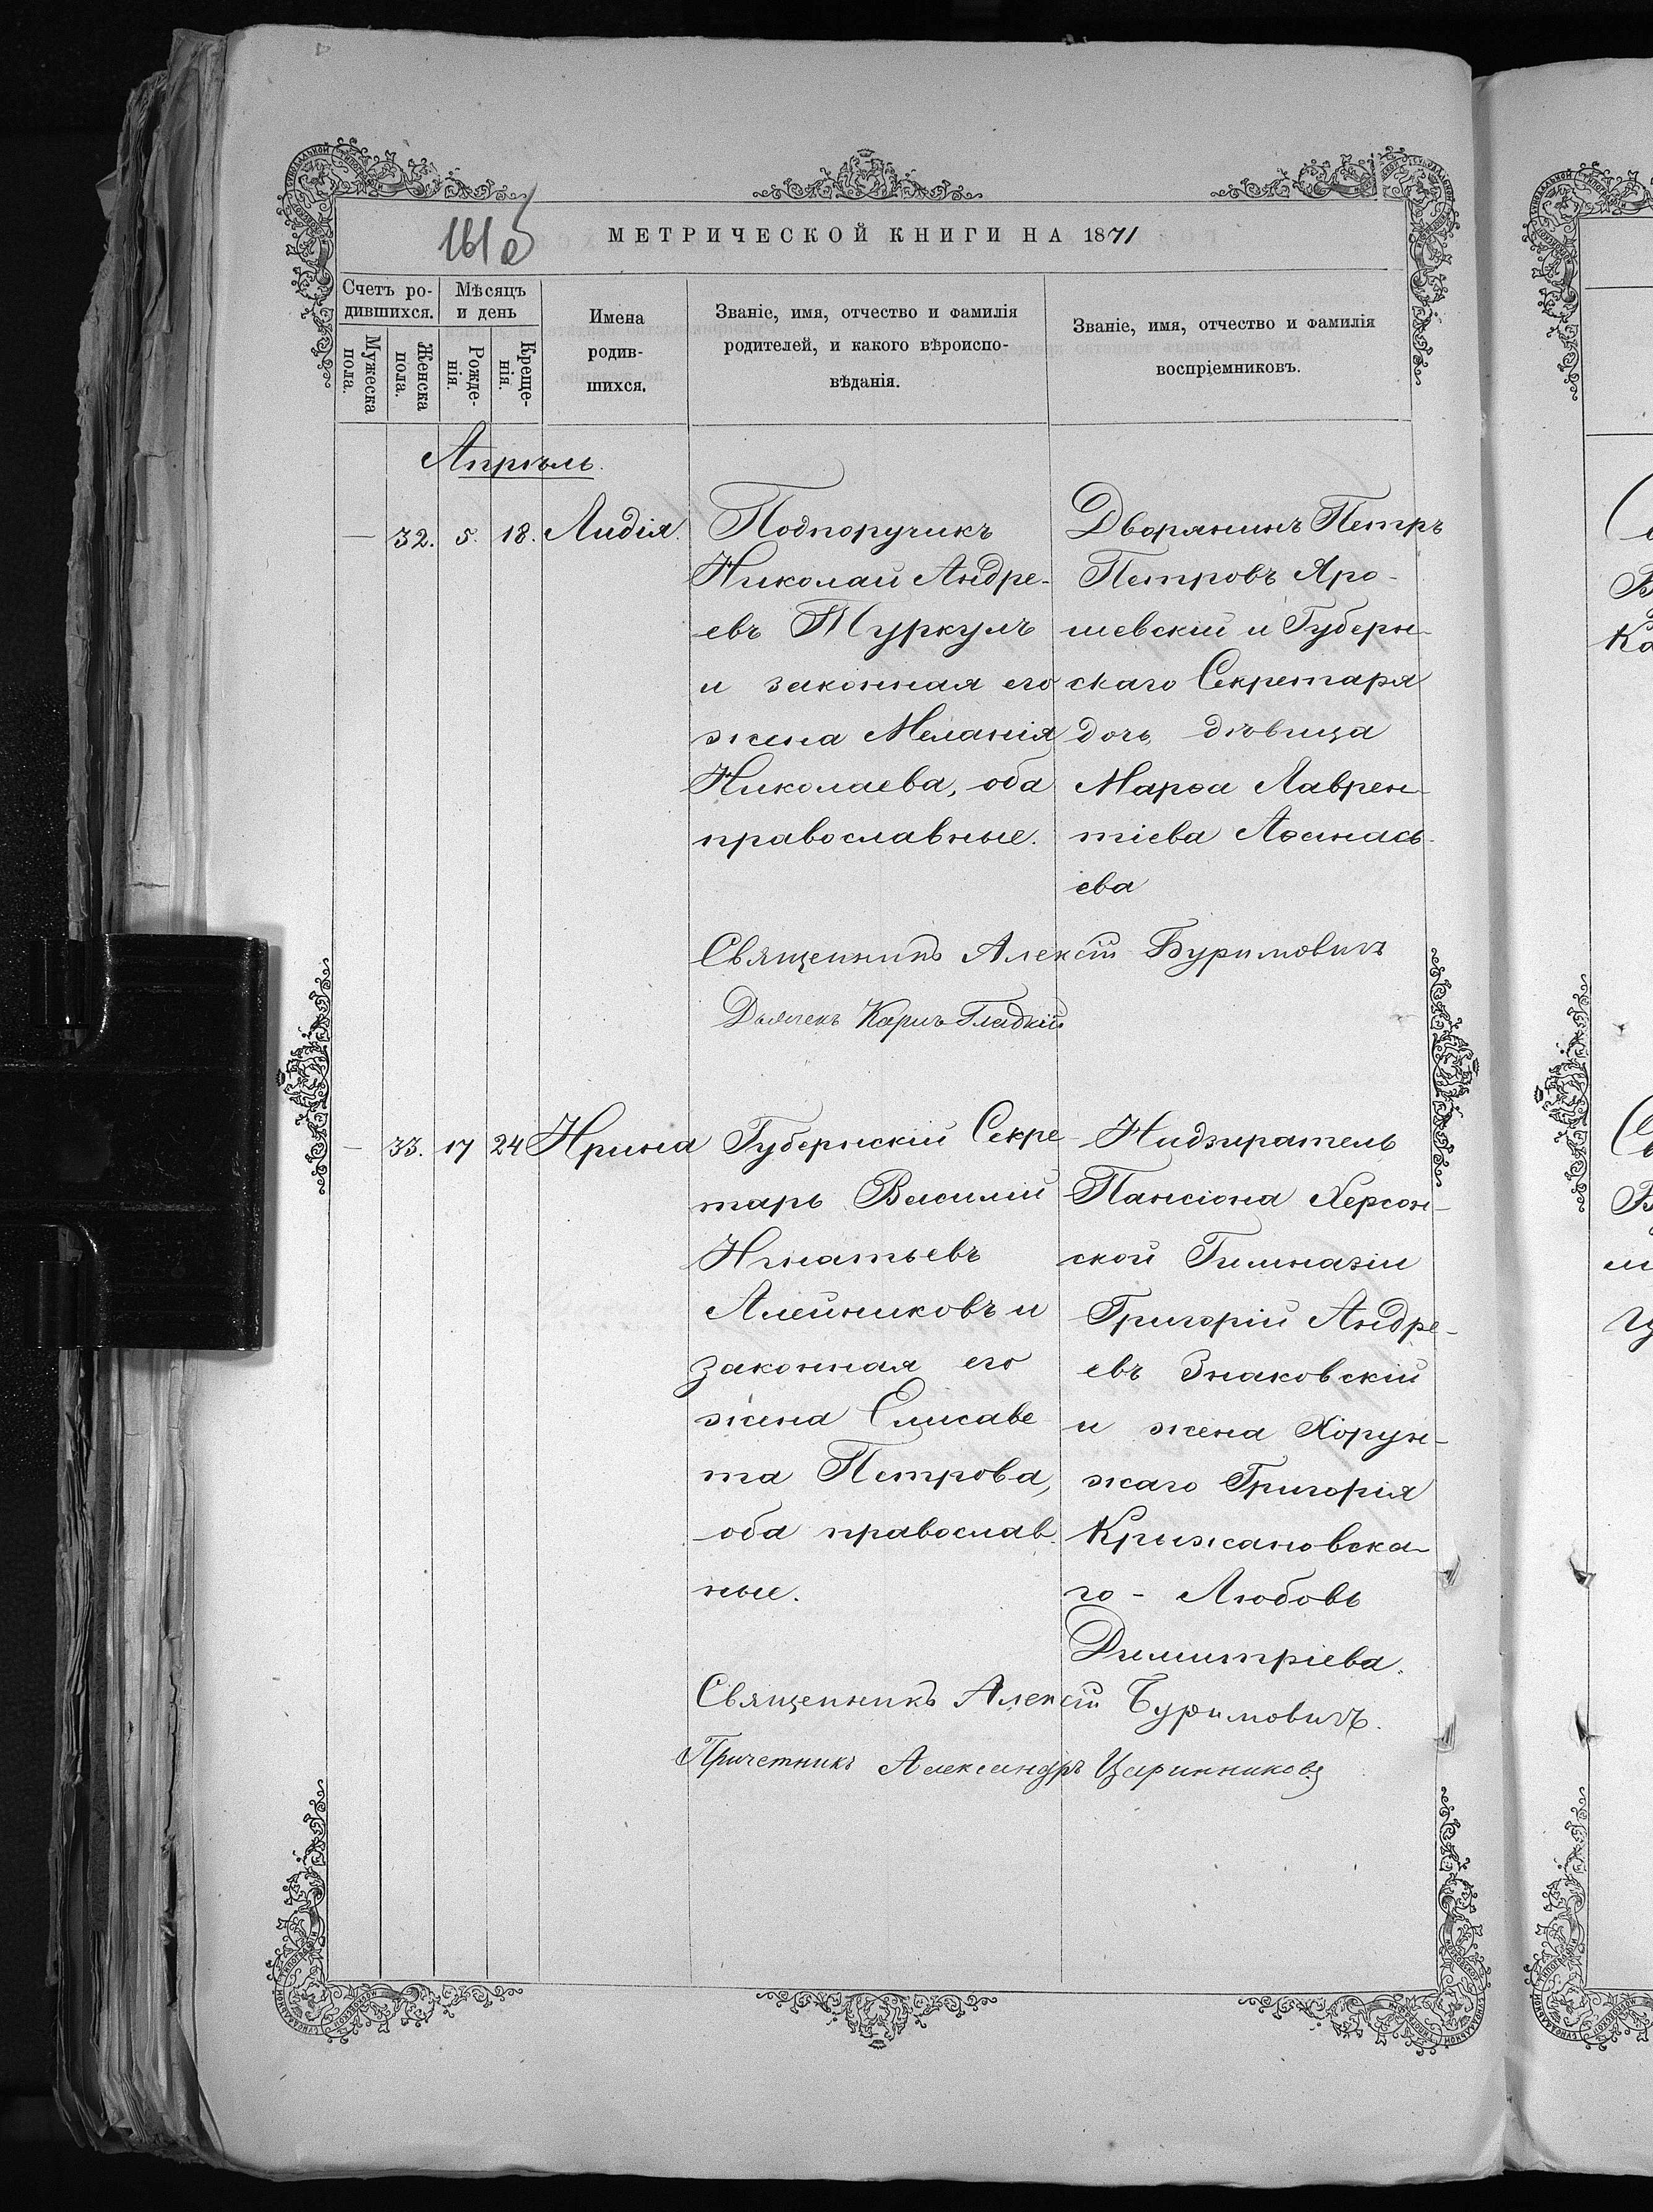 161 об
МЕТРИЧЕСКОЙ КНИГИ НА 1871
Счетъ ро-
дившихся.
Мужеска
пола.
Женска
пола.
Мѣсяцъ
и день
Рожде-
нія.
Креще-
нія.
Имена
родив-
шихся.
Званіе, имя, отчество и фамилія
родителей, и какого вѣроиспо-
вѣданія.
Званіе, имя, отчество и фамилія
воспріемниковъ.
Апрѣль.
— 32. 5. 18. Лидія.
Подпоручикъ
Николай Андре-
евъ Туркулъ
и законная его
жена Меланія
Николаева, оба
православные.
Дворянинъ Петръ
Петровъ Яро-
шевскій и Губерн-
скаго Секретаря
дочь дѣвица
Марѳа Лаврен-
тіева Аѳанась-
ева
Священникъ Алексій Буримовичъ
Дьячекъ Карпъ Гладкій
— 33. 17 24 Ирина
Губернскій Секре-
тарь Василій
Игнатьевъ
Алейниковъ и
законная его
жена Елисаве
та Петрова,
оба православ-
ные.
Надзиратель
Пансіона Херсон-
ской Гимназіи
Григорій Андре-
евъ Знаковскій
и жена Хорун-
жаго Григорія
Крыжановска-
го - Любовь
Димитріева.
Священникъ Алексій Буримовичъ.
Причетникъ Александръ Царинниковъ